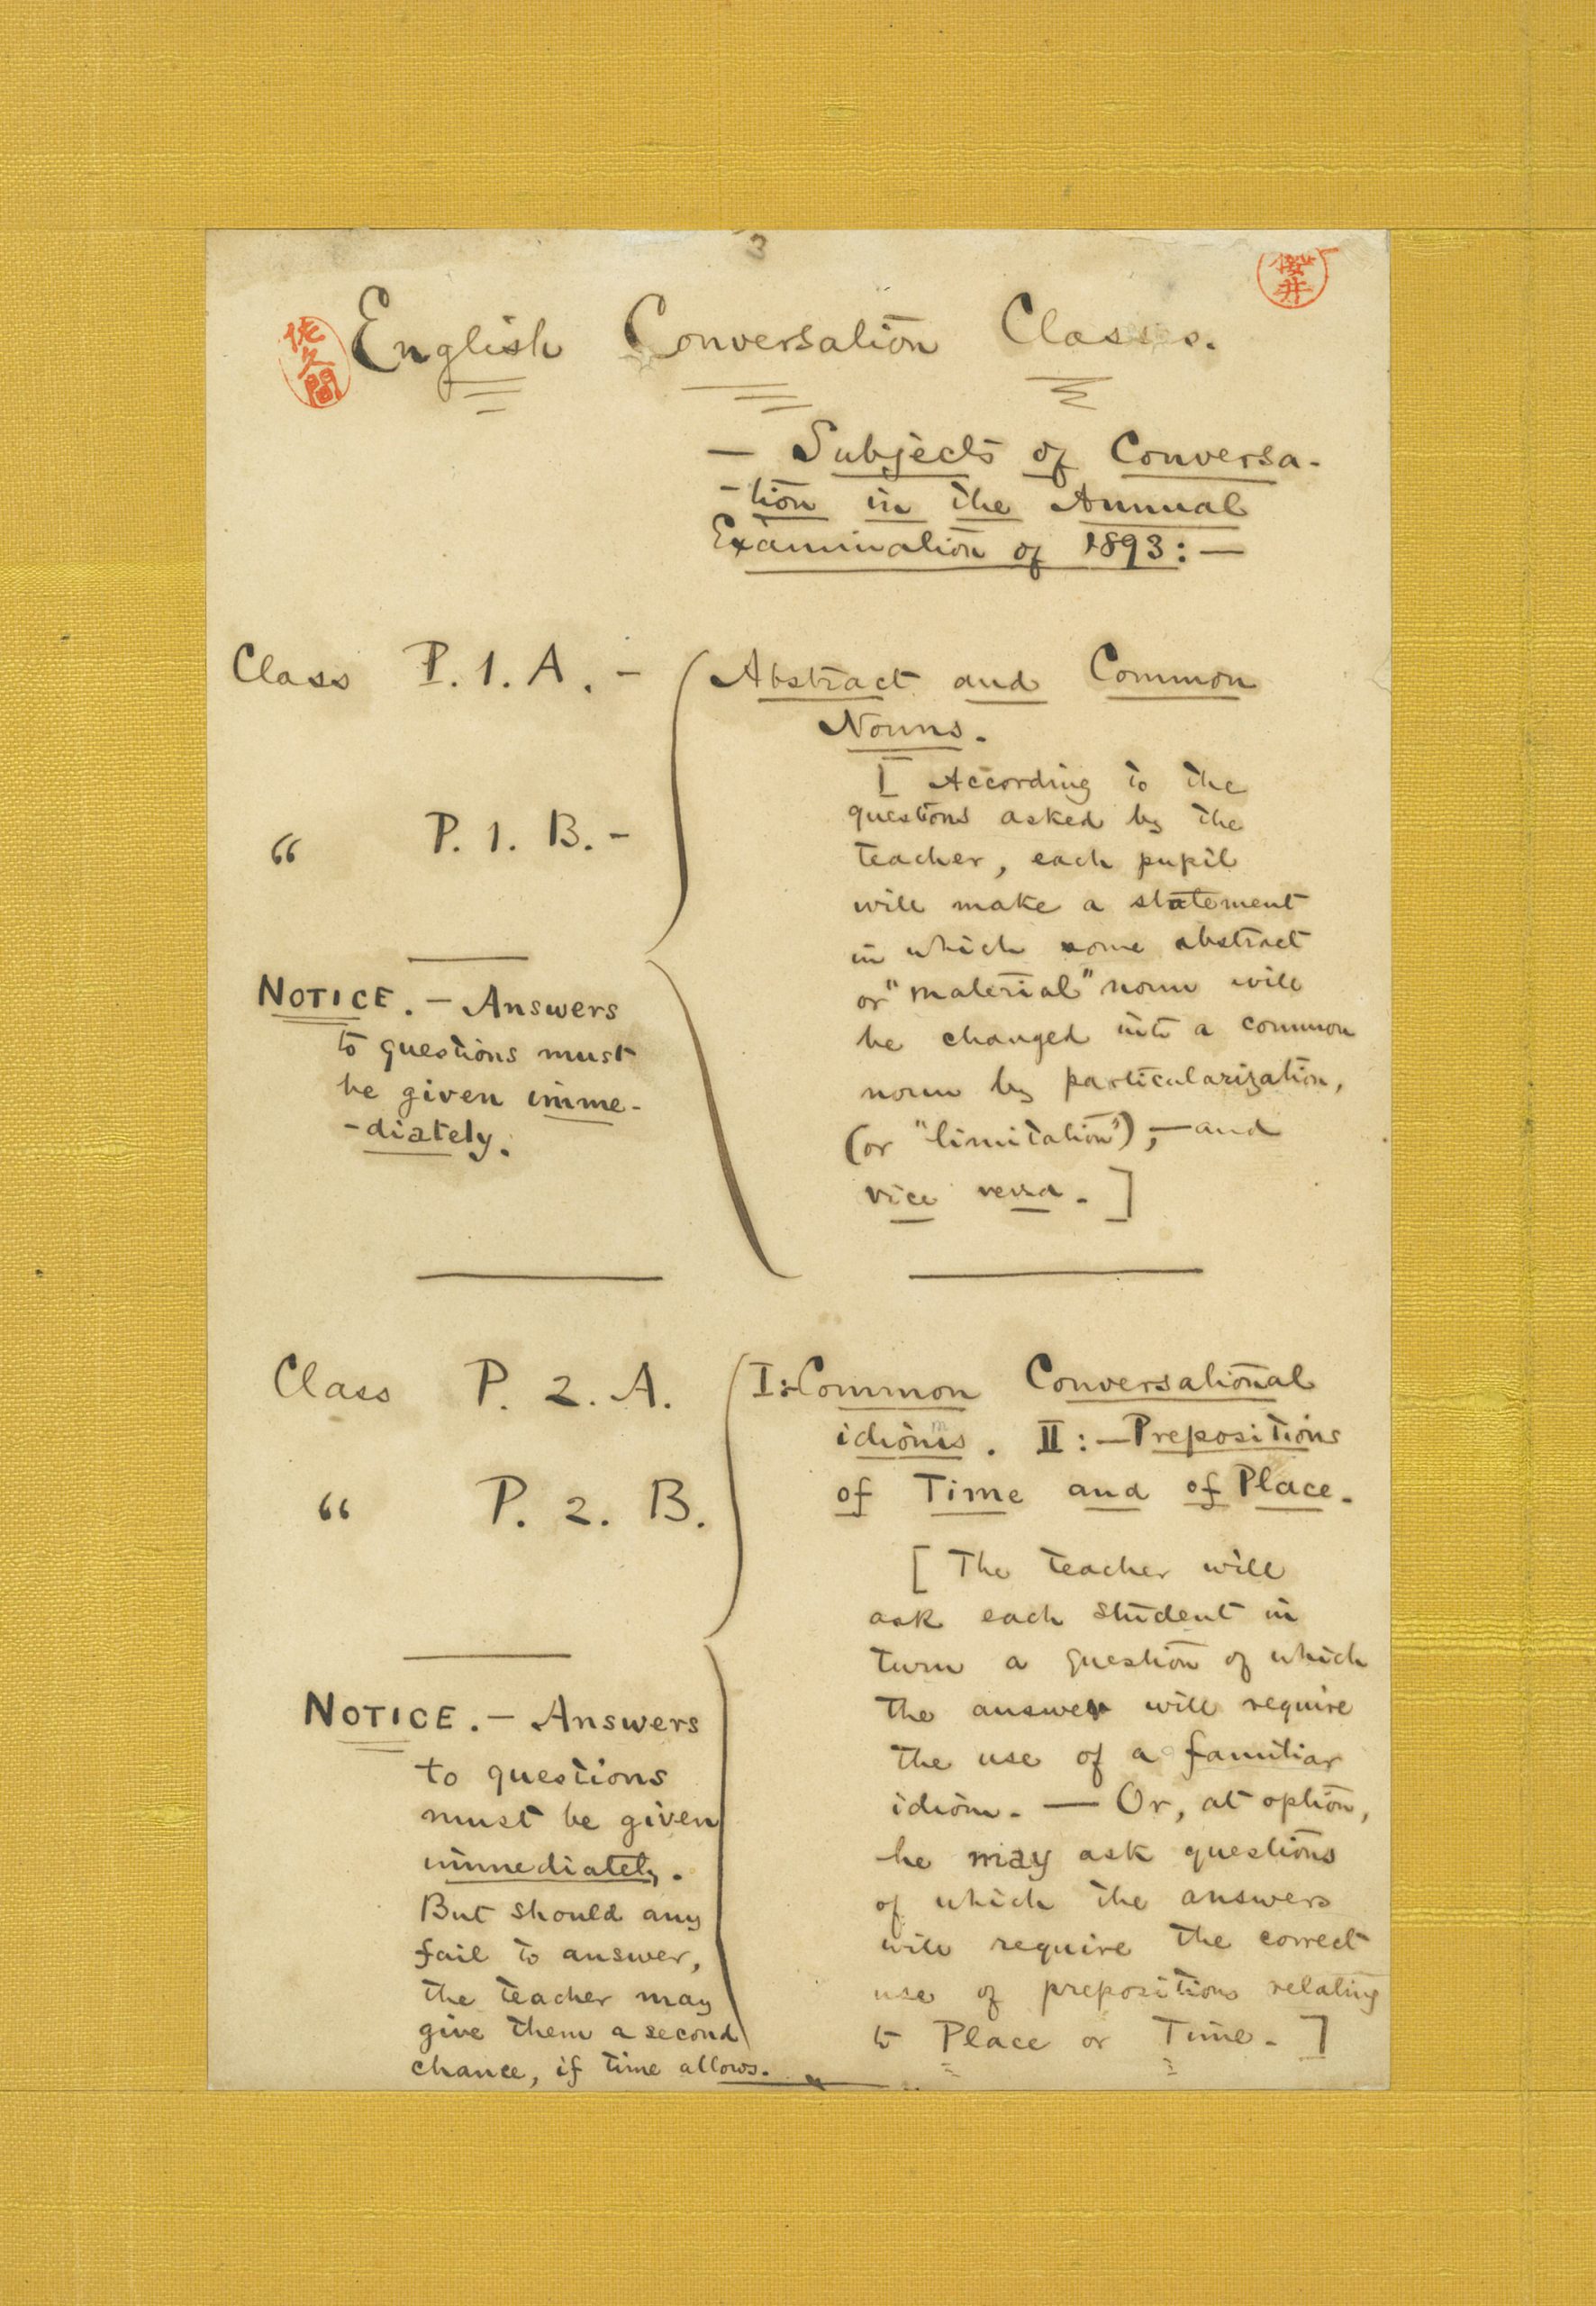 3
櫻井
佐久間
English Conversation Classes.
— Subjects of Conversa-
-tion in the Annual
Examination of 1893:—
Class P. 1. A. -
" P. 1. B. -
NOTICE. — Answers
to questions must
be given imme-
-diately.
Abstract and Common
Nouns.
[ According to the
questions asked by the
teacher, each pupil
will make a statement
in which some abstract
or "material" noun will
be changed into a common
noun by particularization,
(or "limitation"), — and
vice versa. ]
Class P. 2. A.
" P. 2. B.
NOTICE. — Answers
to questions
must be given
immediately.
But should any
fail to answer,
the teacher may
give them a second
chance, if time allows.
I:-Common Conversational
idioms. II:—Prepositions
of Time and of Place.
[ The teacher will
ask each student in
turn a question of which
the answer will require
the use of a familiar
idiom. — Or, at option,
he may ask questions
of which the answers
will require the correct
use of prepositions relating
to Place or Time. ]